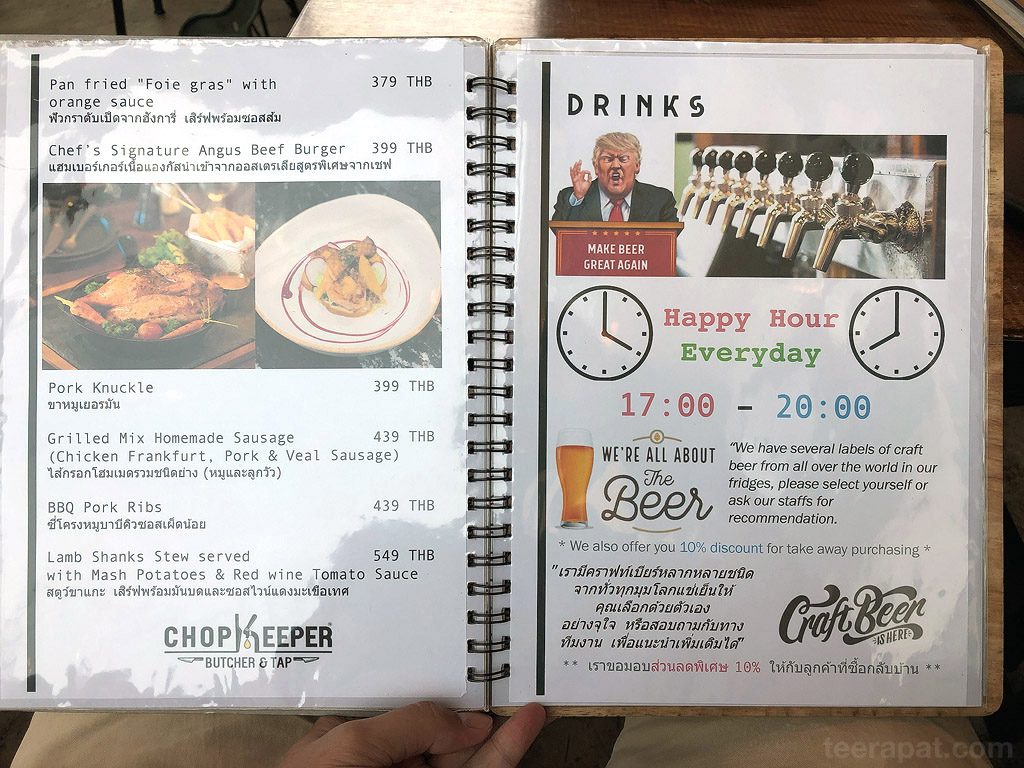 Pan fried "Foie gras" with 379 THB
orange sauce
ฟัวกราตับเป็ดจากฮังการี เสิร์ฟพร้อมซอสส้ม
Chef's Signature Angus Beef Burger 399 THB
แฮมเบอร์เกอร์เนื้อแองกัสนำเข้าจากออสเตรเลียสูตรพิเศษจากเชฟ
Pork Knuckle 399 THB
ขาหมูเยอรมัน
Grilled Mix Homemade Sausage 439 THB
(Chicken Frankfurt, Pork & Veal Sausage)
ไส้กรอกโฮมเมดรวมชนิดย่าง (หมูและลูกวัว)
BBQ Pork Ribs 439 THB
ซี่โครงหมูบาบีคิวซอสเผ็ดน้อย
Lamb Shanks Stew served 549 THB
with Mash Potatoes & Red wine Tomato Sauce
สตูว์ขาแกะ เสิร์ฟพร้อมมันบดและซอสไวน์แดงมะเขือเทศ
CHOPKEEPER
BUTCHER & TAP
DRINKS
MAKE BEER
GREAT AGAIN
Happy Hour
Everyday
17:00 - 20:00
WE'RE ALL ABOUT
The
Beer
"We have several labels of craft
beer from all over the world in our
fridges, please select yourself or
ask our staffs for
recommendation.
* We also offer you 10% discount for take away purchasing *
"เรามีคราฟท์เบียร์หลากหลายชนิด
จากทั่วทุกมุมโลกแช่เย็นให้
คุณเลือกด้วยตัวเอง
อย่างจุใจ หรือสอบถามกับทาง
ทีมงาน เพื่อแนะนำเพิ่มเติมได้"
Craft Beer
IS HERE
** เราขอมอบส่วนลดพิเศษ 10% ให้กับลูกค้าที่ซื้อกลับบ้าน **
teerapat.com